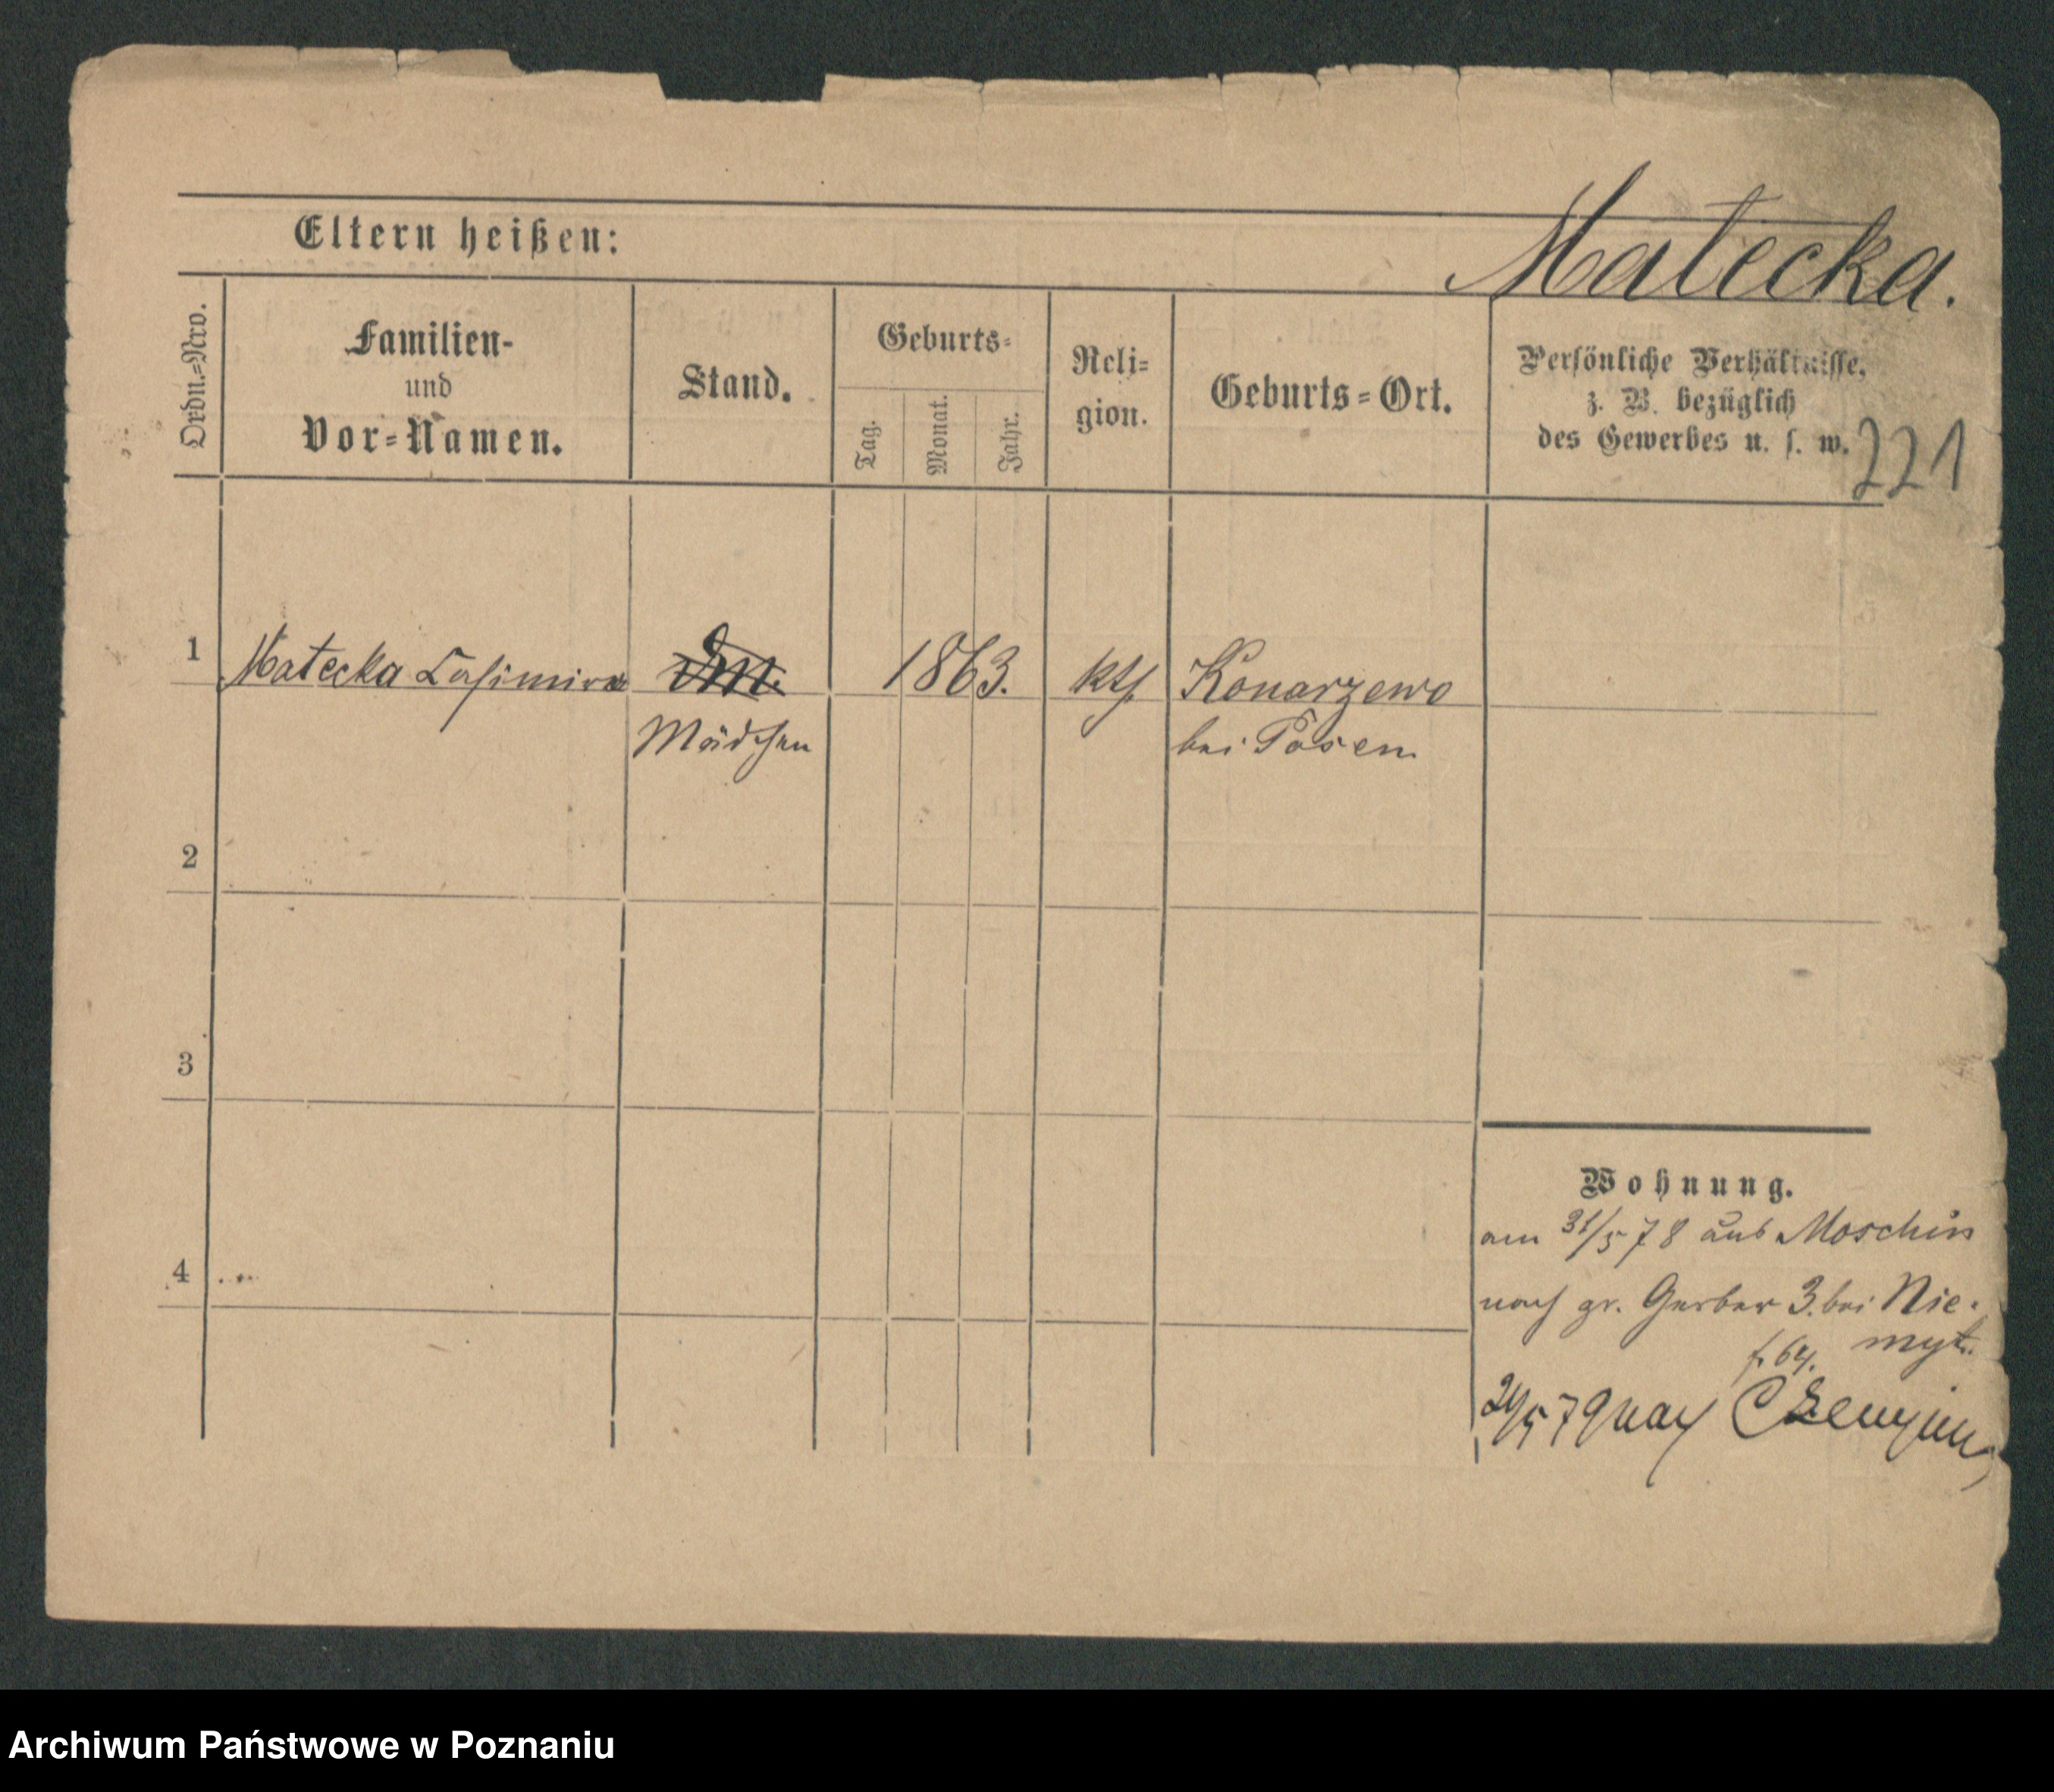 Eltern heißen:
Matecka.
Ordn.=Nro.
Familien-
und
Vor=Namen.
Stand.
Geburts=
Tag.
Monat.
Jahr.
Reli=
gion.
Geburts=Ort.
Persönliche Verhältnisse,
z. B. bezüglich
des Gewerbes u. s. w.
221
1 Matecka Casimira 1863. kth. Konarzewo
Mädchen bei Posen
2
3
4
Wohnung.
am 31/5 78 aus Moschin
nach gr. Gerber 3. bei Nie-
f. 64.
5 79 nach
Archiwum Państwowe w Poznaniu